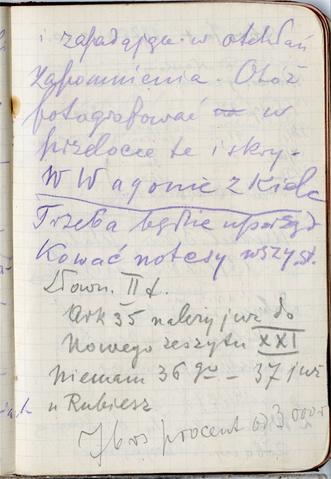 i zapadające w otchłań
Zapomnienia. Otóż
fotografować w
przelocie te iskry.
W Wagonie z Kielc
Trzeba będzie uporząd
kować notesy wszyst.
Słown. II t.
Ark 35 należy już do
Nowego zeszytu XXI
Niemam 36 go – 37 już
u Rubiesz
procent od 3 000